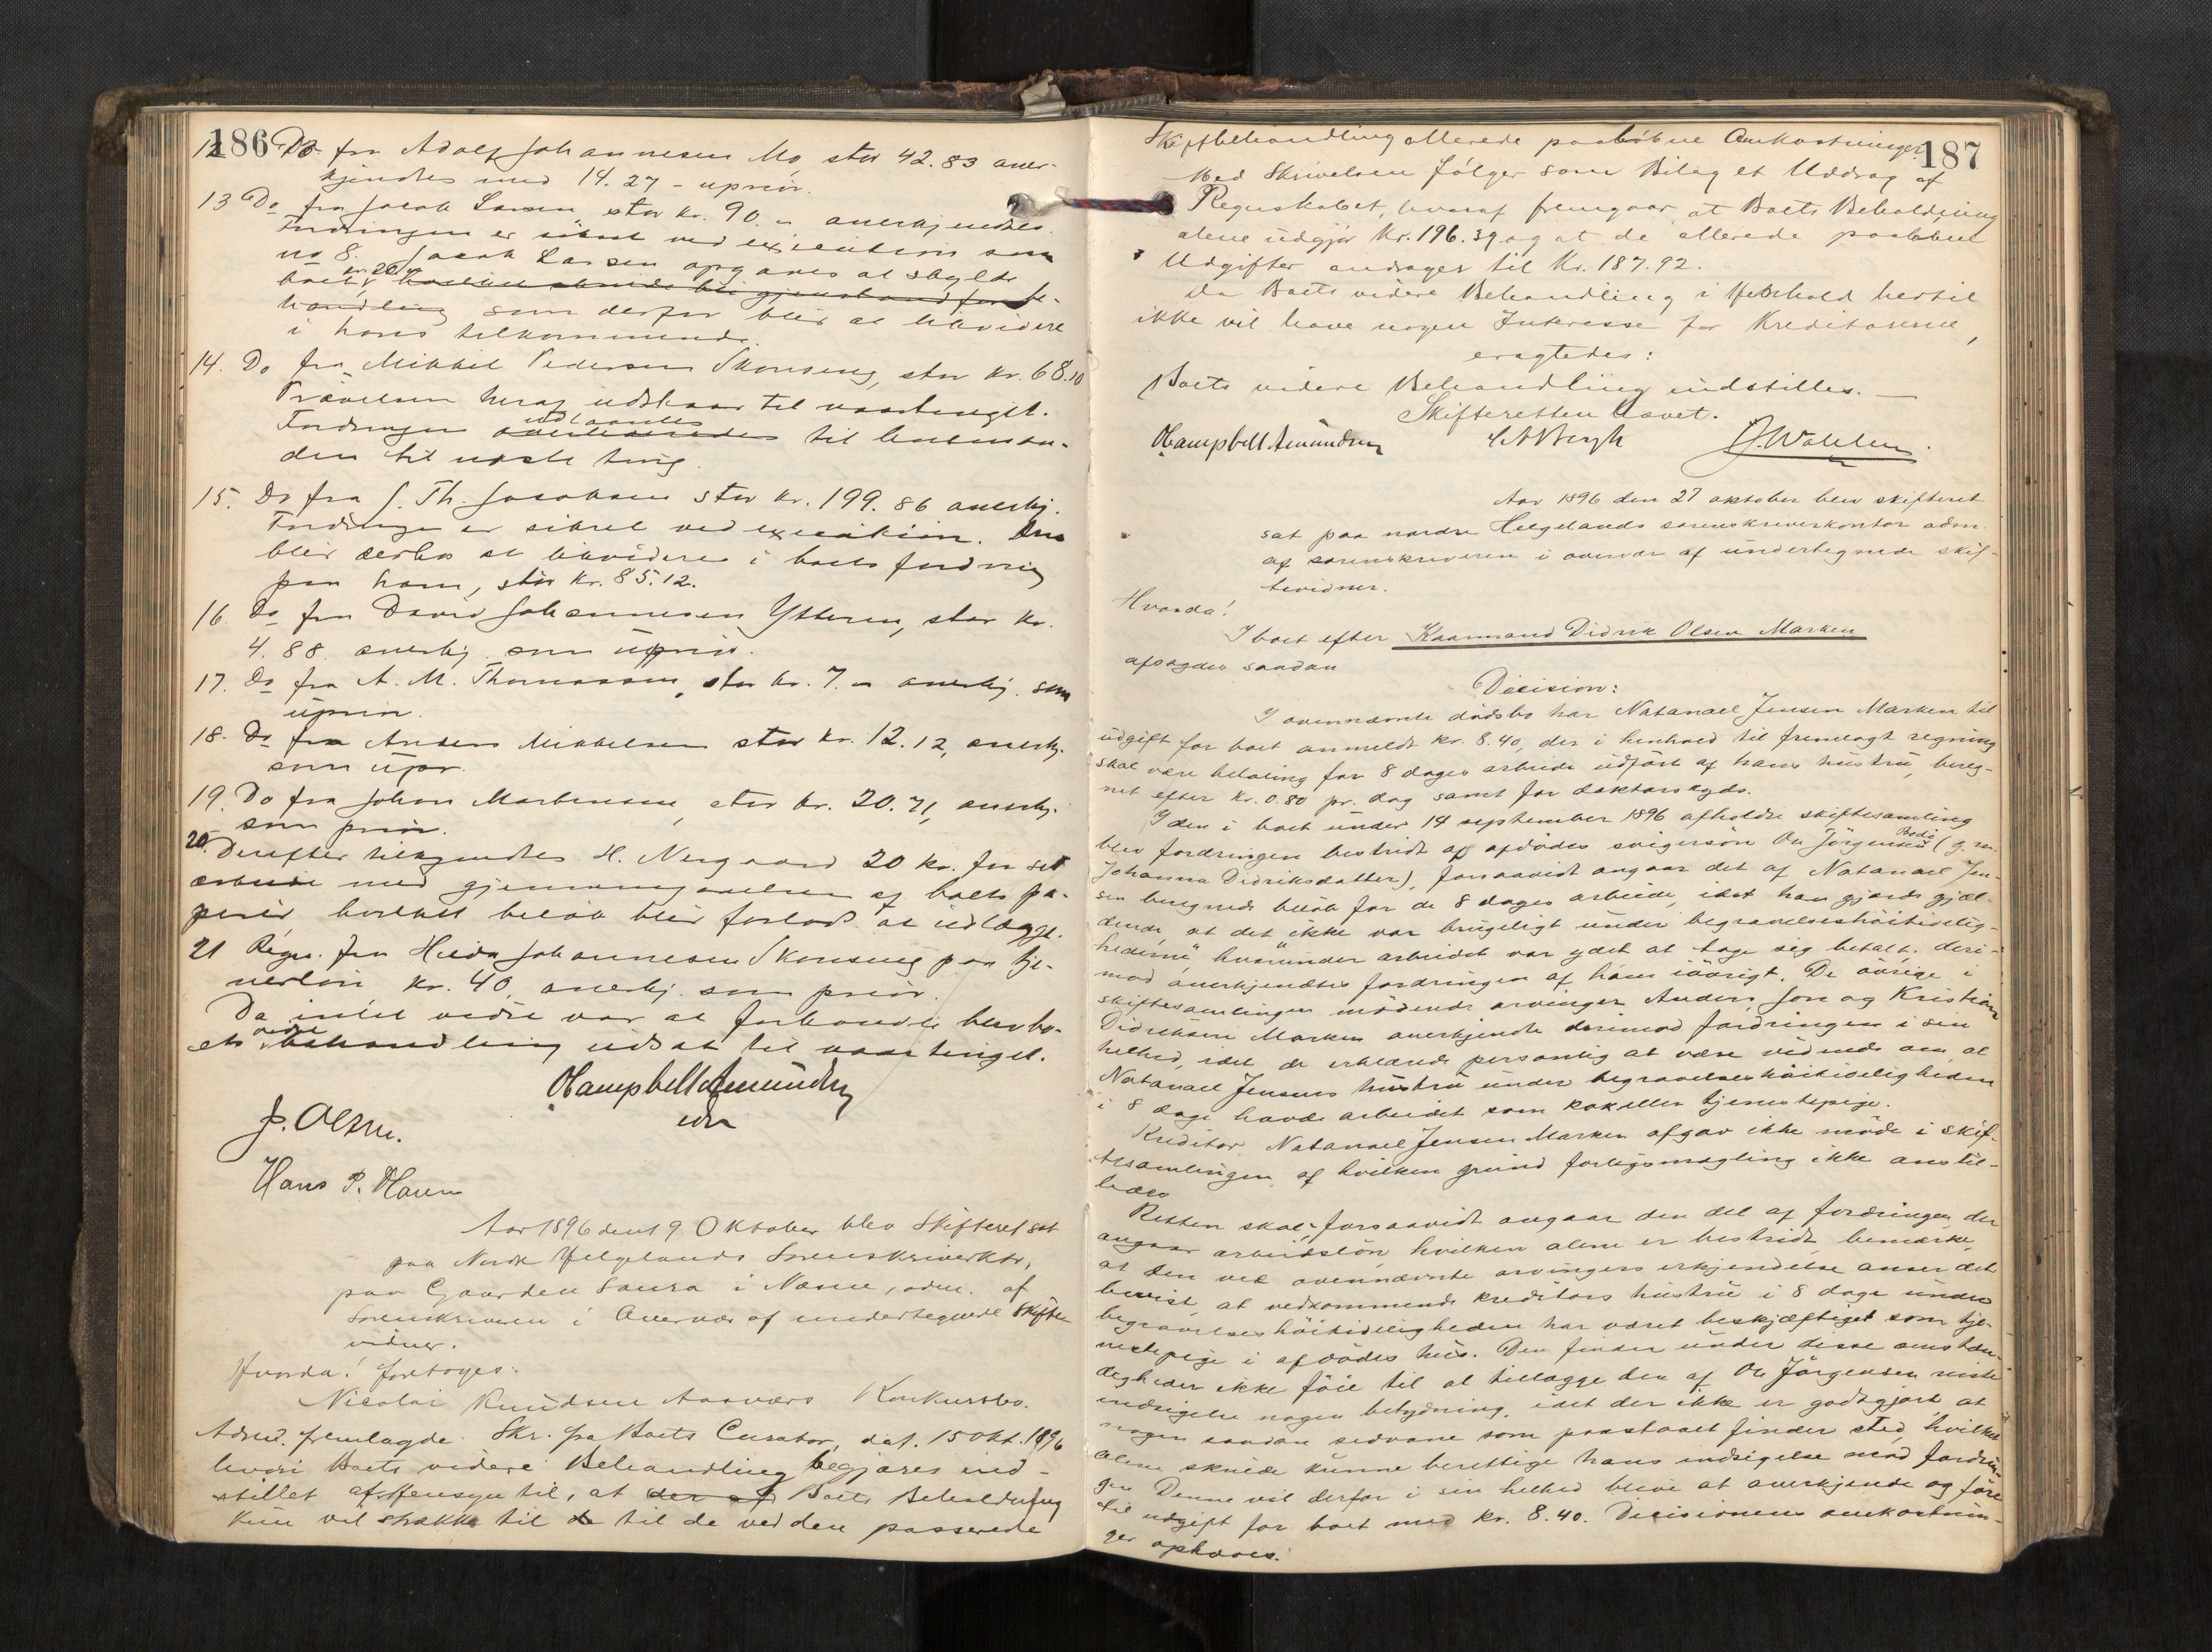 186
12 Do fra Adolf Johannesen Mo, stor 42.83 aner-
kjendtes med 14.27 - uprior.
13 Do fra Jacob Larsen, stor kr. 90. - anerkjendtes.
Fordringen er sikret ved execution som
no 8. Jacob Larsen opgaves at skylde
boet kr. 20 hvilket skulde bli gjenstand for be-
handling som derfor blir at likvidere
i hans tilkommende.
14. Do fra Mikkel Pedersen Skonseng, stor kr. 68.10
Prøvelsen heraf udstaar til vaartinget.
Fordringen udlaantes til lensman-
den til næste ting.
15. Do fra J. Th. Jacobsen stor kr. 199.86 anerkj.
Fordringen er sikret ved execution. Den
blir derhos at likvidere i boets fordring
paa ham, stor kr. 85.12.
16. Do fra David Johannesen Ytteren, stor kr.
4.88 anerkj. som uprior.
17. Do fra A. M. Thomassen, stor kr. 7. - anerkj. som
uprior.
18. Do fra Anders Mikkelsen stor kr. 12.12, anerkj.
som upr.
19. Do fra Johan Martinsen, stor kr. 20.71, anerkj.
som prior.
20. Derefter tilkjendtes H. Nergaard 20 kr. for sit
arbeide med gjennemgaaelsen af boets pa-
pirer hvilket beløb blir forlods at udlægge.
21 Regn. fra Hilda Johannesen Skonseng paa tje-
nerløn kr. 40, anerkj. som prior.
Da intet videre var at forhandle blev bo-
ets videre behandling udsat til vaartinget.
O Campbell Amundsen
J. Olsen.
Hans P. Haven
Aar 1896 den 19 Oktober blev Skifteret sat
paa Nordre Helgelands Sorenskriverktr,
paa Gaarden Saura i Næsne, adm. af
Sorenskriveren i Overvær af undertegnede Skifte-
vidner.
Hvorda! foretoges:
Nicolai Knudsen Aasværs Konkursbo.
Adm. fremlagde Skr. fra Boets Curator, dat. 15 Okt. 1896
hvori Boets videre Behandling begjæres ind-
stillet af Hensyn til, at der af Boets Beholdning
kun vil strække til de til de ved den passerede
187
Skiftbehandling allerede paaløbne Omkostninger.
Med Skrivelsen følger som Bilag et Uddrag af
Regnskabet, hvoraf fremgaar, at Boets Beholdning
alene udgjør Kr. 196.39 og at de allerede paaløbne
Udgifter andrager til Kr. 187.92.
Da Boets videre Behandling i Henhold hertil
ikke vil have nogen Interesse for Kreditorerne,
eragtedes:
Boets videre Behandling indstilles. —
Skifteretten hævet.
O Campbell Amundsen C A Bergh J. Wahlen.
Aar 1896 den 27 oktober blev skifteret
sat paa nordre Helgelands sorenskriverkontor adm.
af sorenskriveren i overvær af undertegnede skif-
tevidner.
Hvorda!
I boet efter Kaarmand Didrik Olsen Marken
afsagdes saadan
Decision:
I ovennævnte dødsbo har Natanael Jensen Marken til
udgift for boet anmeldt kr. 8.40, der i henhold til fremlagt regning
skal være betaling for 8 dages arbeide udført af hans hustru, bereg-
net efter kr. 0.80 pr. dag samt for doktorskyds.
I den i boet under 14 september 1896 afholdte skiftesamling
blev fordringen bestridt af afdødes svigersøn Ole Jørgensen Bodø (g. m.
Johanna Didriksdatter), forsaavidt angaar det af Natanael Jen-
sen beregnede beløb for de 8 dages arbeide, idet han gjorde gjæl-
dende, at det ikke var brugeligt under begravelseshøitidelig-
hederne hvorunder arbeidet var ydet at tage sig betalt, deri-
mod anerkjendtes fordringen af ham iøvrigt. De øvrige i
skiftesamlingen mødende arvinger Anders, Jon og Kristian
Didriksen Marken anerkjendte derimod fordringen i sin
helhed, idet de erklærede personlig at være vidende om, at
Natanael Jensens hustru under begravelseshøitideligheden
i 8 dage havde arbeidet som kok eller tjenestepige.
Kreditor Natanael Jensen Marken afgav ikke møde i skif-
tesamlingen, af hvilken grund forligsmægling ikke anstil-
ledes
Retten skal, forsaavidt angaar den del af fordringen, der
angaar arbeidsløn, hvilken alene er bestridt, bemærke,
at den ved ovennævnte arvingers erkjendelse anser det
bevist, at vedkommende kreditors hustru i 8 dage under
begravelseshøitideligheden har været beskjæftiget som tje-
nestepige i afdødes hus. Den finder under disse omstæn-
digheder ikke føie til at tillægge den af Ole Jørgensen reiste
indsigelse nogen betydning, idet der ikke er godtgjort, at
nogen saadan sedvane som paastaaet finder sted, hvilket
alene skulde kunne berettige hans indsigelse mod fordrin-
gen Denne vil derfor i sin helhed blive at anerkjende og føre
til udgift for boet med kr. 8.40. Decisionens omkostnin-
ger ophæves.